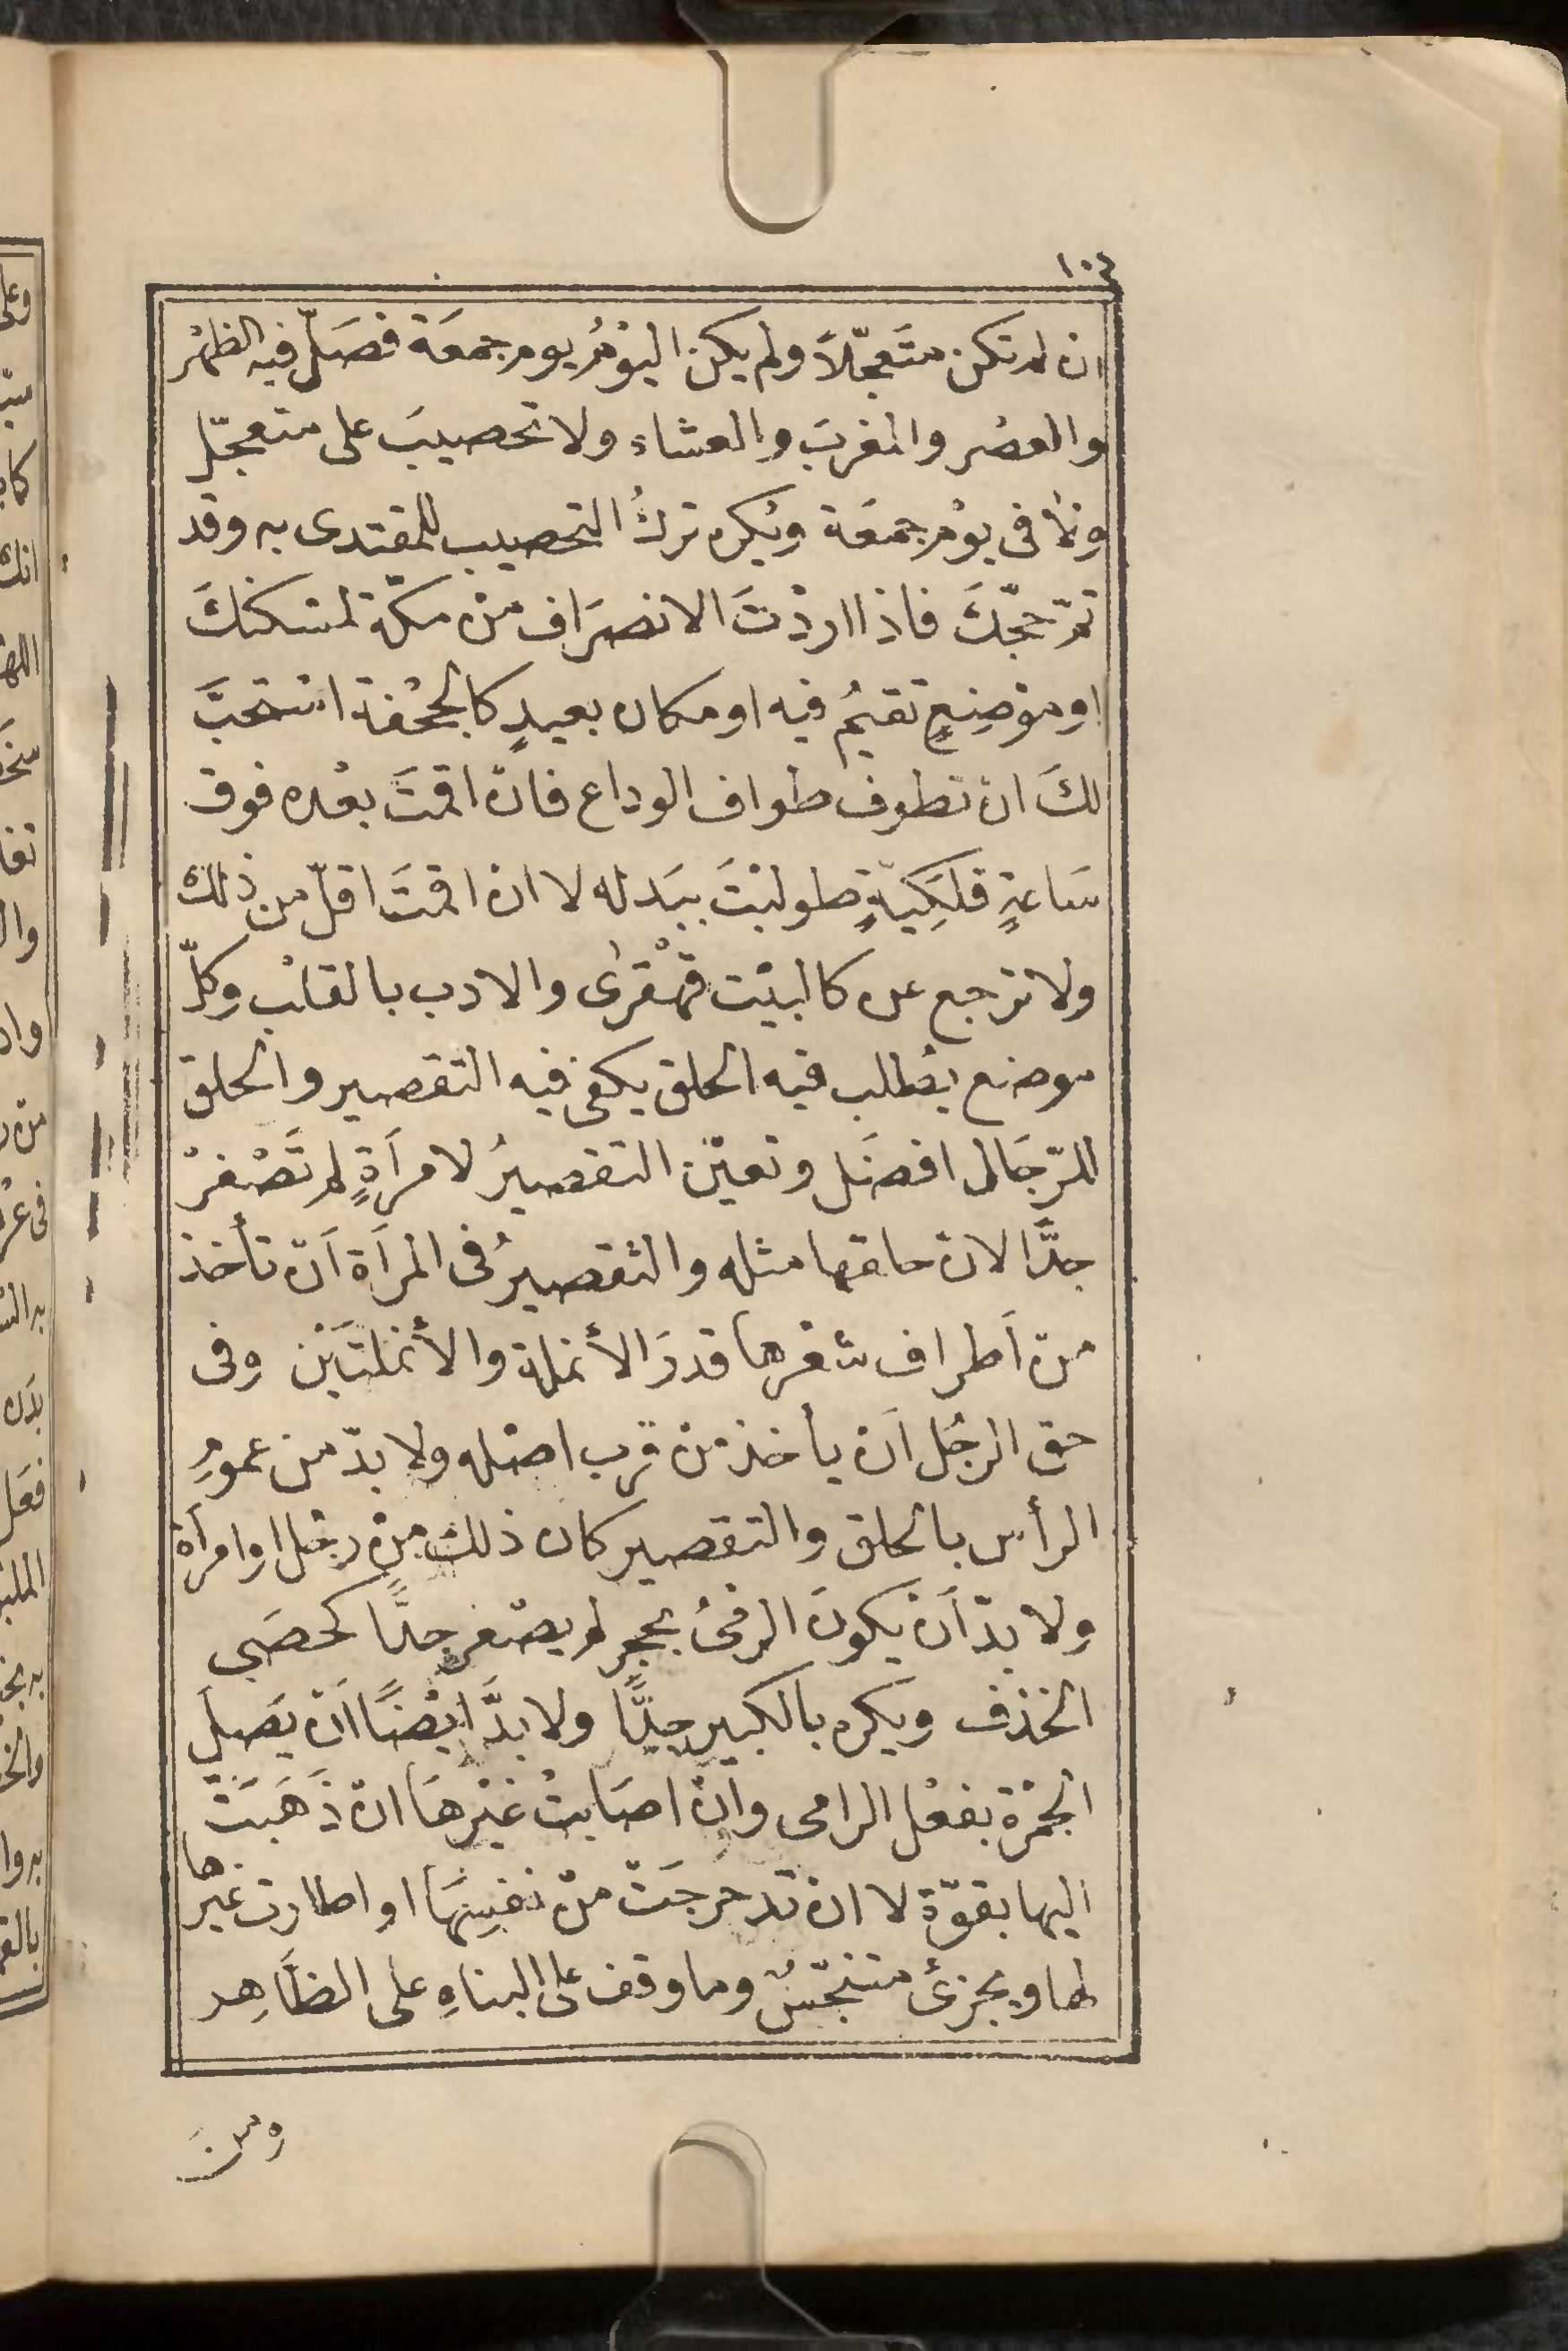 ١٠٤
ان لم تكن متَعجّلاً ولم يكن اليوْمُ يوم جمعَة فصَلّ فيه الظهْر
والعصْر والمغربَ والعشاء ولا تحصيبَ على متعجّل
ولا فى يوْم جمعَة ويُكره تركُ التحصيب للمقتدى به وقد
تمّ حجّكَ فاذا اردْتَ الانصرَاف منْ مكّة لمسْكنكَ
او موْضِعٍ تقيمُ فيه او مكان بعيدٍ كالجحْفة اسْتحبَّ
لكَ ان تطوف طواف الوداع فانْ اقمتَ بعْده فوق
سَاعةٍ فلَكِيّةٍ طولبْتَ ببَدله لا ان اقمتَ اقلّ من ذلك
ولا ترجع عن كالبيْت قهْقرى والادب بالقلْب وكلّ
موضع يُطلب فيه الحلق يكفى فيه التقصير والحلق
للرّجَال افضَل وتعيّن التقصيرُ لامرَأةٍ لم تَصْغرْ
جدًّا لان حلقها مثله والتقصيرُ فى المرأة أنْ تأخذ
منْ أطراف شعْرها قدرَ الأنملة والأنملتَيْن وفى
حق الرجُل أن يأخذ من قرب اصْله ولا بدّ من عمومِ
الرأس بالحلق والتقصير كان ذلك منْ رجُل او امرأة
ولا بدّ أنْ يكونَ الرمْىُ بحجرٍ لم يصْغر جدًّا كحصَى
الخذف ويكره بالكبير جدًّا ولا بدَّ ايْضًا أنْ يَصلَ
الجمْرة بفعْل الرامى وانْ اصَابتْ غيْرهَا انْ ذَهَبَتْ
اليها بقوّة لا ان تدحرجَتْ منْ نفسِهَا او اطارت غيرها
لها ويجزئ متنجّسٌ وما وقف على البناءِ على الظَّاهِر
ومن